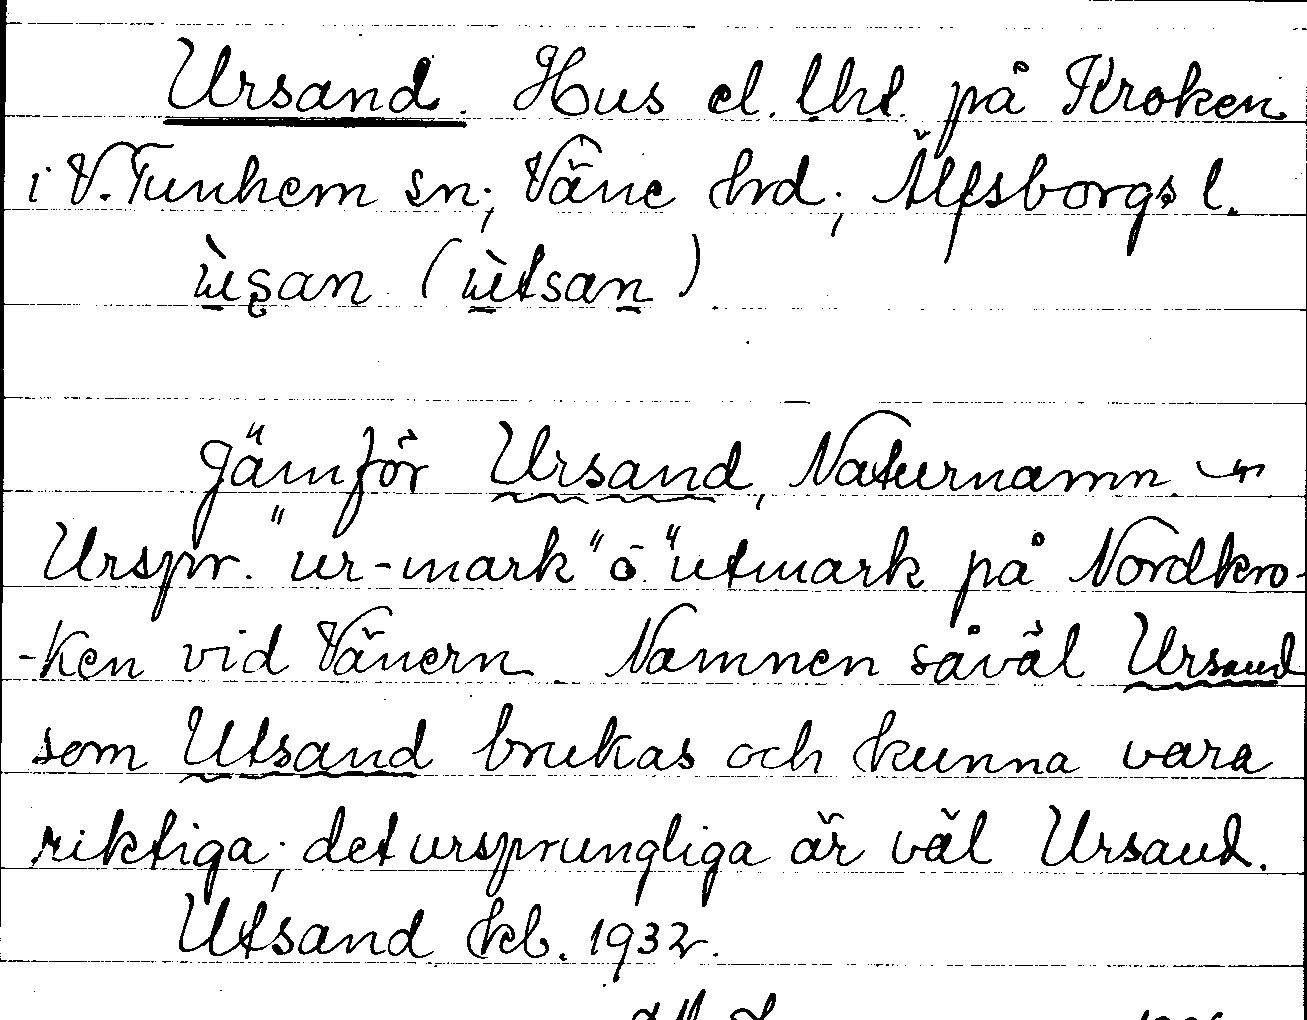 Ursand. Hus el. lht. på Kroken
i V. Tunhem sn; Väne hd; Älfsborgs l.
ùsan (ùtsan)
Jämför Ursand, Naturnamn.
Urspr. "ur-mark" o. "utmark på Nordkro-
-ken vid Vänern. Namnen såväl Ursand
som Utsand brukas och kunna vara
riktiga; det ursprungliga är väl Ursand.
Utsand kb. 1932.